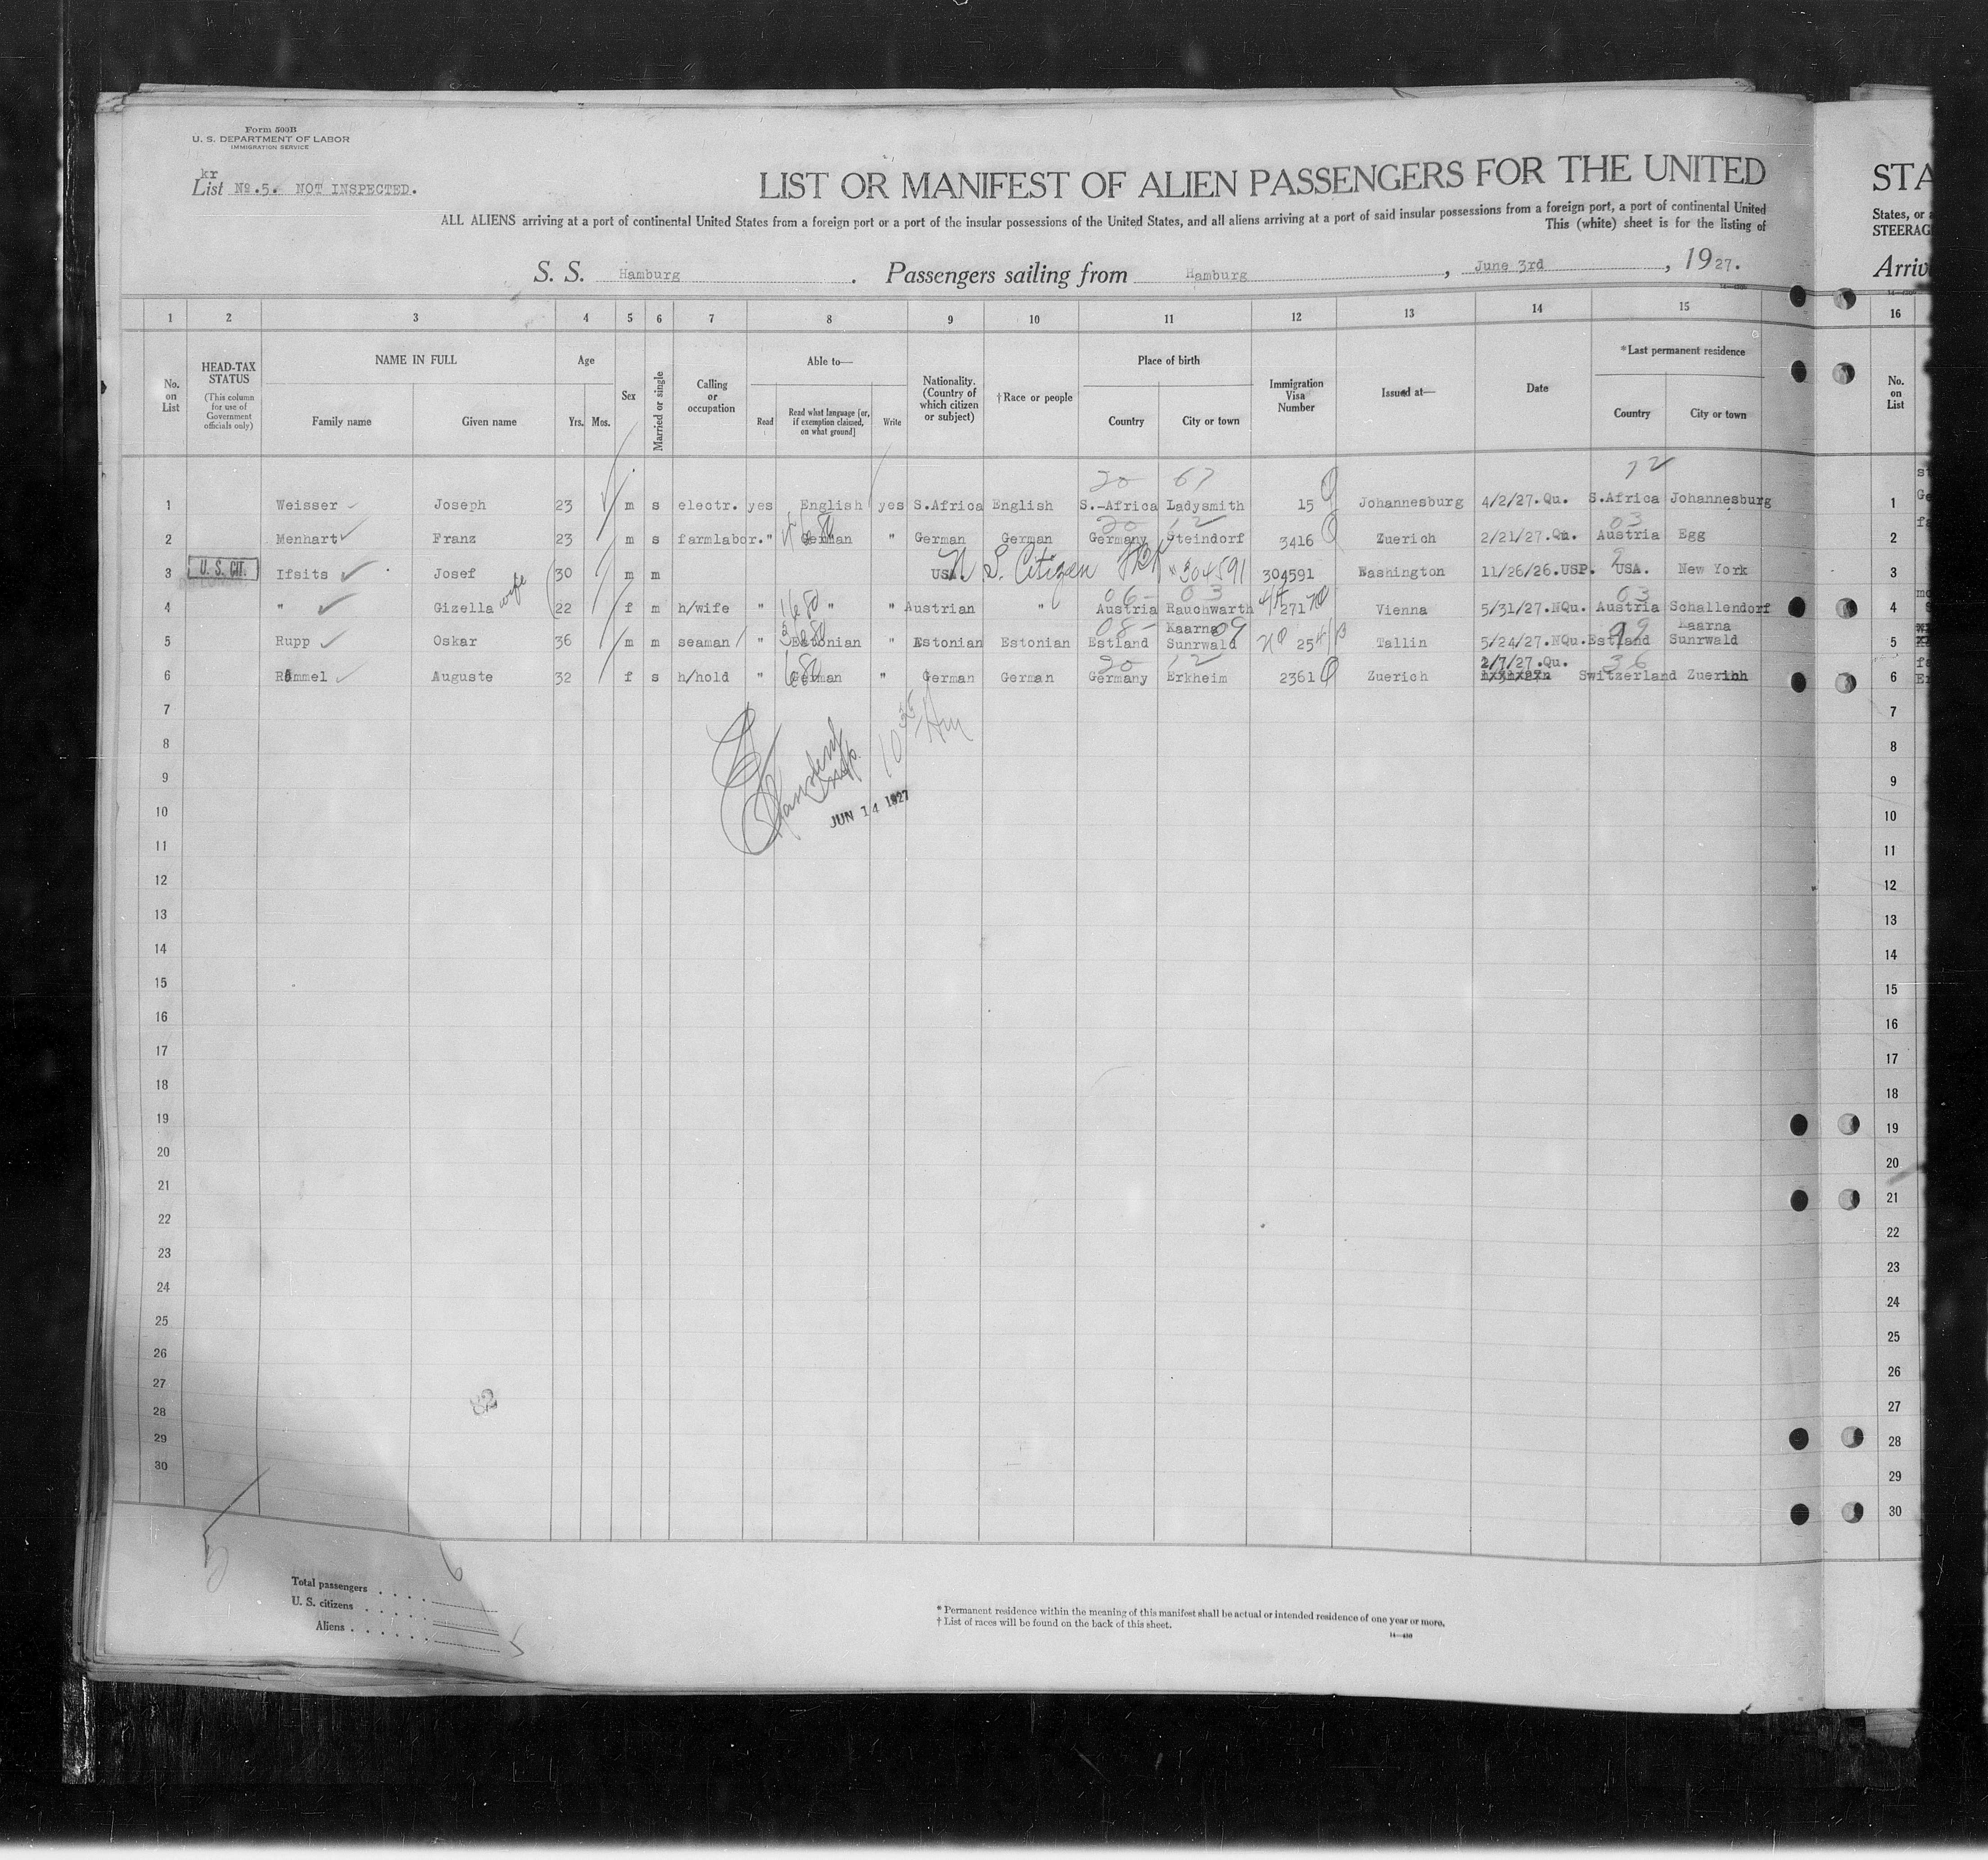 Form 500B
U. S. DEPARTMENT OF LABOR
IMMIGRATION SERVICE
kr
List No.5. NOT INSPECTED.
LIST OR MANIFEST OF ALIEN PASSENGERS FOR THE UNITED
STA
ALL ALIENS arriving at a port of continental United States from a foreign port or a port of the insular possessions of the United States, and all aliens arriving at a port of said insular possessions from a foreign port, a port of continental United
States, or
This (white) sheet is for the listing of
STEERAG
S. S. Hamburg. Passengers sailing from Hamburg, June 3rd, 1927.
Arriv
1 2 3 4 5 6 7 8 9 10 11 12 13 14 15 16
No. on List
HEAD-TAX STATUS
(This column for use of Government officials only)
NAME IN FULL
Family name Given name
Age
Yrs. Mos.
Sex
Married or single
Calling or occupation
Able to—
Read
Read what language [or, if exemption claimed, on what ground]
Write
Nationality. (Country of which citizen or subject)
†Race or people
Place of birth
Country City or town
Immigration Visa Number
Issued at—
Date
*Last permanent residence
Country City or town
No. on List
20 67 72
1 Weisser Joseph 23 m s electr. yes English yes S.Africa English S.-Africa Ladysmith 15 Johannesburg 4/2/27.Qu. S.Africa Johannesburg 1
20 12 03
2 Menhart Franz 23 m s farmlabor. " German " German German Germany Steindorf 3416 Q Zuerich 2/21/27.Qu. Austria Egg 2
3 U. S. CIT. Ifsits Josef 30 m m USA. U S. Citizen "304591 304591 Washington 11/26/26.USP. USA. New York 3
wife
06- 03 03
4 " Gizella 22 f m h/wife " " " Austrian " Austria Rauchwarth 271 Vienna 5/31/27.NQu. Austria Schallendorf 4
08- Kaarna 09 99 Kaarna
5 Rupp Oskar 36 m m seaman " Estonian " Estonian Estonian Estland Sunrwald 25 Tallin 5/24/27.NQu. Estland Sunrwald 5
20 12 2/7/27.Qu. 36
6 Römmel Auguste 32 f s h/hold " German " German German Germany Erkheim 2361 Q Zuerich Switzerland Zuerich 6
7 7
8 8
9 9
10 35 AM
JUN 14 1927
10 10
11 11
12 12
13 13
14 14
15 15
16 16
17 17
18 18
19 19
20 20
21 21
22 22
23 23
24 24
25 25
26 26
27 27
82
28 28
29 29
30 30
Total passengers
U. S. citizens
Aliens
* Permanent residence within the meaning of this manifest shall be actual or intended residence of one year or more.
† List of races will be found on the back of this sheet.
14—430